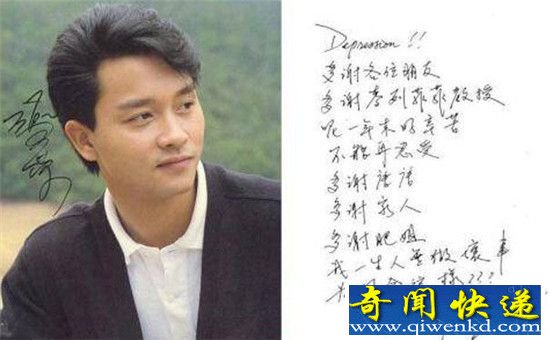 Depression !!
多謝各位朋友
多謝麥列菲菲教授
呢一年來好辛苦
不能再忍受
多謝唐唐
多謝家人
多謝肥姐
我一生人無做壞事
樣???
奇闻快递
www.qiwenkd.com